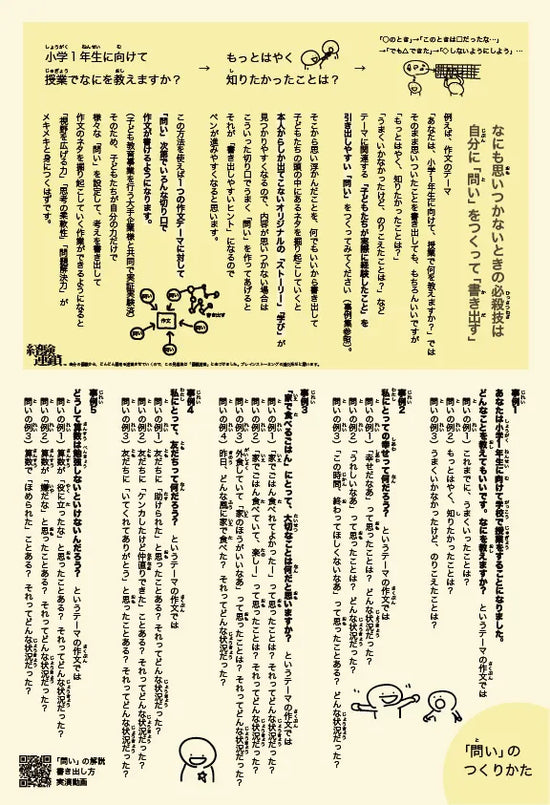 小学1年生に向けて
授業でなにを教えますか?
→
もっとはやく
知りたかったことは?
→
「○のとき」→「このときは□だったな…」
→「でも△できた」→「◇しないようにしよう」…
なにも思いつかないときの必殺技は
自分に「問い」をつくって「書き出す」
例えば、作文のテーマ
「あなたは、小学1年生に向けて、授業で何を教えますか?」では
そのまま思いついたことを書き出しても、もちろんいいですが
「もっとはやく、知りたかったことは?」
「うまくいかなかったけど、のりこえたことは?」など
テーマに関連する「子どもたちが実際に経験したこと」を
引き出しやすい「問い」をつくってみてください(事例集参照)。
そこから思い浮かんだことを、何でもいいから書き出して
子どもたちの頭の中にあるネタを掘り起こしていくと
本人からしか出てこないオリジナルの「ストーリー」「学び」が
見つかりやすくなるので、内容が思いつかない場合は
こういった切り口でうまく「問い」を作ってあげると
それが「書き出しやすいヒント」になるので
ペンが進みやすくなると思います。
この方法を使えば1つの作文テーマに対して
「問い」次第でいろんな切り口で
作文が書けるようになります。
(子ども教育事業を行う大手企業様と共同で実証実験済)
そのため、子どもたちが自分の力だけで
様々な「問い」を設定して、考えを書き出して
作文のネタを掘り起こしていく作業ができるようになると
「視野を広げる力」「思考の柔軟性」「問題解決力」が
メキメキと身につくはずです。
問い
問い
問い
問い
問い
作文
書き出す
経験
連鎖
事例1
あなたは小学1年生に向けて学校で授業をすることになりました。
どんなことを教えてもいいです。なにを教えますか? というテーマの作文では
問いの例1) これまでに、うまくいったことは?
問いの例2) もっとはやく、知りたかったことは?
問いの例3) うまくいかなかったけど、のりこえたことは?
事例2
私にとっての幸せって何だろう? というテーマの作文では
問いの例1) 「幸せだなあ」って思ったことは? どんな状況だった?
問いの例2) 「うれしいなあ」って思ったことは? どんな状況だった?
問いの例3) 「この時間、終わってほしくないなあ」って思ったことある? どんな状況だった?
事例3
「家で食べるごはん」にとって、大切なことは何だと思いますか? というテーマの作文では
問いの例1) 「家でごはん食べれてよかったー」って思ったことは? それってどんな状況だった?
問いの例2) 「家でごはん食べていて、楽しー」って思ったことは? それってどんな状況だった?
問いの例3) 外食していて「家のほうがいいなあ」って思ったことは? それってどんな状況だった?
問いの例4) 昨日、どんな風に家で食べた? それってどんな状況だった?
事例4
私にとって、友だちって何だろう? というテーマの作文では
問いの例1) 友だちに「助けられた」と思ったことある? それってどんな状況だった?
問いの例2) 友だちに「ケンカしたけど仲直りできた」ことある? それってどんな状況だった?
問いの例3) 友だちに「いてくれてありがとう」と思ったことある? それってどんな状況だった?
事例5
どうして算数は勉強しないといけないんだろう? というテーマの作文では
問いの例1) 算数が「役に立ったな」と思ったことある? それってどんな状況だった?
問いの例2) 算数が「嫌だな」と思ったことある? それってどんな状況だった?
問いの例3) 算数で「ほめられた」ことある? それってどんな状況だった?
「問い」の解説
書き出し方
実演動画
「問い」の
つくりかた